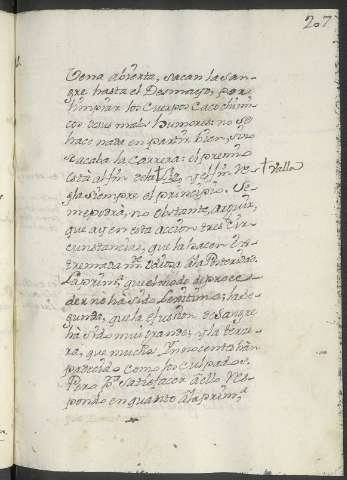 207
Vena abierta, sacan la San-
gre hasta el Desmayo, por
limpiar los Cuerpos Cacochimi-
cos de sus malos humores: no se
hace nada en partir bien, sino
se acaba la Carrera: el premio
está al fin de la † y el fin Re- † Valla
gla siempre el principio. Se
me podrá, no obstante, arguir,
que ay en esta accion tres Cir-
cunstancias, que la hacen Es-
tremadamte. odiosa à la Posteridad.
La primª. que el modo de proce-
der no ha sido Legitimo; la se-
gunda, que la efusion de Sangre
ha sido muy grande; y la terce-
ra, que muchos Innocentes han
padecido como los culpados.
Pero pª. satisfacer à ello Res-
pondo en quanto à la primª.